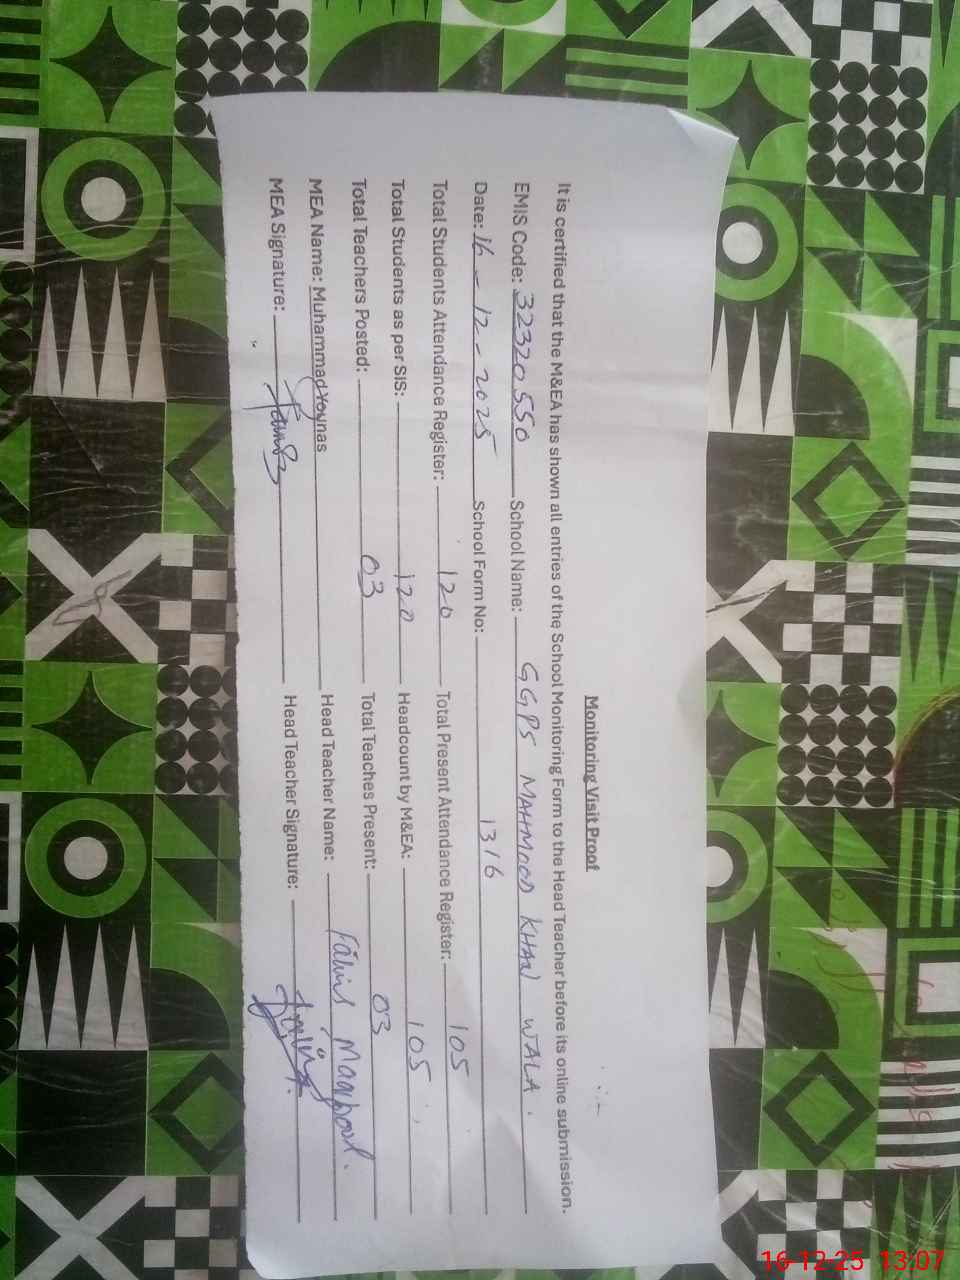 Monitoring Visit Proof
It is certified that the M&EA has shown all entries of the School Monitoring Form to the Head Teacher before its online submission.
EMIS Code: 32320550 School Name: GGPS MAHMOOD KHAN WALA.
Date: 16-12-2025 School Form No: 1316
Total Students Attendance Register: 120 Total Present Attendance Register: 105
Total Students as per SIS: 120 Headcount by M&EA: 105
Total Teachers Posted: 03 Total Teaches Present: 03
MEA Name: Muhammad Younas Head Teacher Name: Maqbool.
MEA Signature: Head Teacher Signature:
16-12-25 13:07